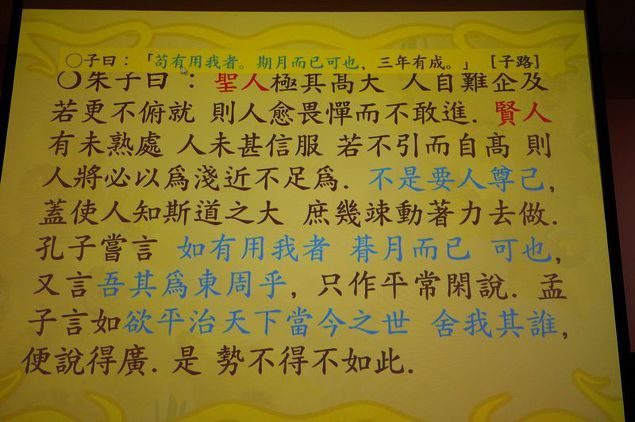 ○子曰：「苟有用我者。期月而已可也，三年有成。」 [子路]
○朱子曰：聖人極其高大 人自難企及
若更不俯就 則人愈畏憚而不敢進. 賢人
有未熟處 人未甚信服 若不引而自高 則
人將必以爲淺近不足爲. 不是要人尊己,
蓋使人知斯道之大 庶幾竦動著力去做.
孔子嘗言 如有用我者 朞月而已 可也,
又言吾其爲東周乎, 只作平常閑說. 孟
子言如欲平治天下當今之世 舍我其誰,
便說得廣. 是 勢不得不如此.